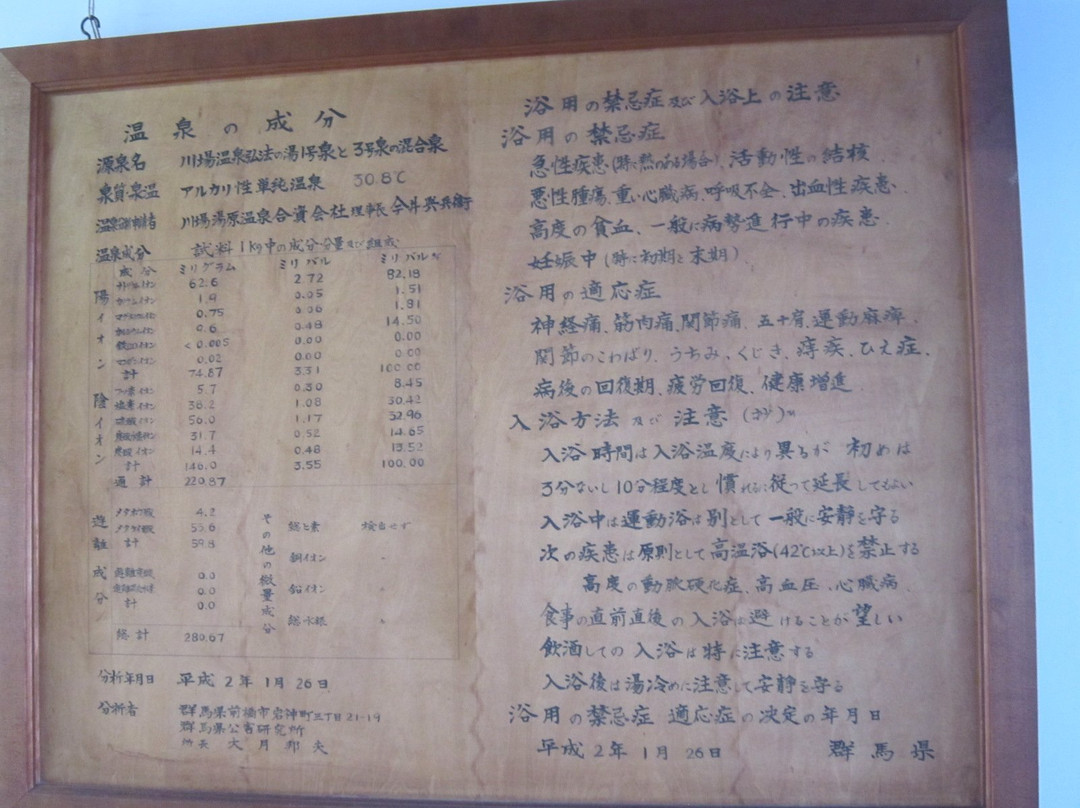 温泉の成分
源泉名 川場温泉弘法の湯1号泉と3号泉の混合泉
泉質・泉温 アルカリ性単純温泉 30.8℃
川場湯原温泉合資会社理事長
温泉成分 試料1kg中の成分分量及び組成
成分 ミリグラム ミリバル ミリバル%
陽イオン
ナトリウムイオン 62.6 2.72 82.18
カリウムイオン 1.9 0.05 1.51
マグネシウムイオン 0.75 0.06 1.81
カルシウムイオン 9.6 0.48 14.50
鉄(II)イオン <0.005 0.00 0.00
マンガンイオン 0.02 0.00 0.00
計 74.87 3.31 100.00
陰イオン
フッ素イオン 5.7 0.30 8.45
塩素イオン 38.2 1.08 30.42
硫酸イオン 56.0 1.17 32.96
炭酸水素イオン 31.7 0.52 14.65
炭酸イオン 14.4 0.48 13.52
計 146.0 3.55 100.00
通計 220.87
遊離成分
メタケイ酸
メタホウ酸
4.2
55.6
計 59.8
0.0
0.0
計 0.0
総計 280.67
その他の微量成分
総ヒ素 検出せず
銅イオン 〃
鉛イオン 〃
総水銀 〃
分析年月日 平成2年1月26日
分析者 群馬県前橋市岩神町三丁目21-19
群馬県公害研究所
所長 大月邦夫
浴用の禁忌症及び入浴上の注意
浴用の禁忌症
急性疾患(特に熱のある場合)、活動性の結核
悪性腫瘍、重い心臓病、呼吸不全、出血性疾患、
高度の貧血、一般に病勢進行中の疾患
妊娠中(特に初期と末期)
浴用の適応症
神経痛、筋肉痛、関節痛、五十肩、運動麻痺、
関節のこわばり、うちみ、くじき、痔疾、ひえ症、
病後の回復期、疲労回復、健康増進
入浴方法及び注意
入浴時間は入浴温度により異るが 初めは
3分ないし10分程度とし慣れるに従って延長してもよい
入浴中は運動浴は別として一般に安静を守る
次の疾患は原則として高温浴(42℃以上)を禁止する
高度の動脈硬化症、高血圧、心臓病、
食事の直前直後の入浴は避けることが望しい
飲酒しての入浴は特に注意する
入浴後は湯冷めに注意して安静を守る
浴用の禁忌症 適応症の決定の年月日
平成2年1月26日 群馬県